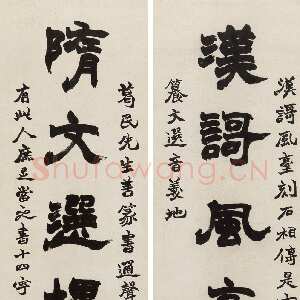 漢謌風
漢謌風臺刻石相傳是
纂文選音義地
隋文選
葛民先生善篆書通聲
有此人庶足當之書十四字
Shufawang.CN